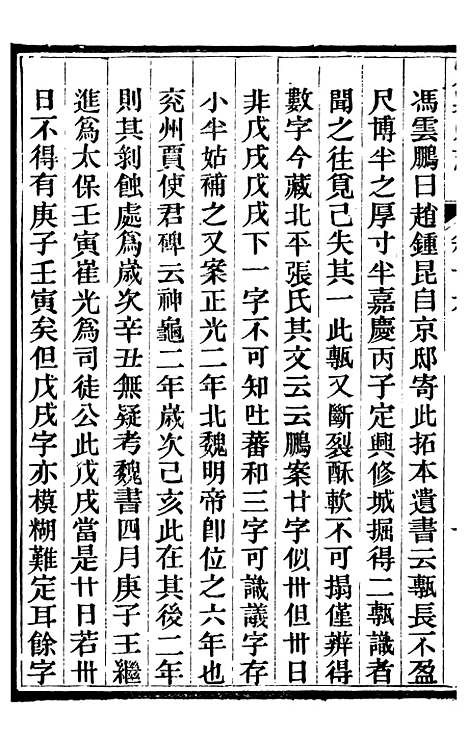 馮雲鵬曰趙鍾昆自京邸寄此拓本遺書云甎長不盈
尺博半之厚寸半嘉慶丙子定興修城掘得二甎識者
聞之往覓己失其一此甎又斷裂酥軟不可搨僅辨得
數字今藏北平張氏其文云云鵬案廿字似卅但卅日
非戊戌戊戌下一字不可知吐蕃和三字可識議字存
小半姑補之又案正光二年北魏明帝卽位之六年也
兖州賈使君碑云神龜二年歲次己亥此在其後二年
則其剝蝕處爲歲次辛丑無疑考魏書四月庚子王繼
進爲太保壬寅崔光爲司徒公此戊戌當是廿日若卅
日不得有庚子壬寅矣但戊戌字亦模糊難定耳餘字